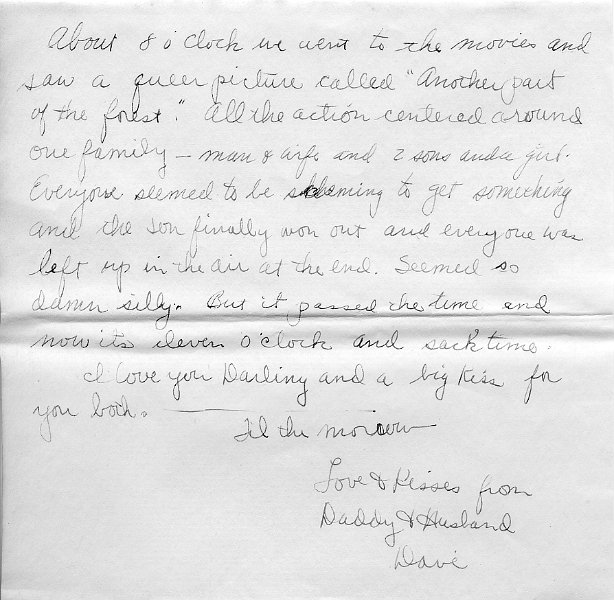 About 8 o'clock we went to the movies and
saw a queer picture called "Another part
of the forest." All the action centered around
one family — man & wife and 2 sons and a girl.
Everyone seemed to be scheming to get something
and the son finally won out and everyone was
left up in the air at the end. Seemed so
damn silly. But it passed the time and
now its eleven o'clock and sack time.
I love you Darling and a big kiss for
you both.
Til the morrow
Love & Kisses from
Daddy & Husband
Dave